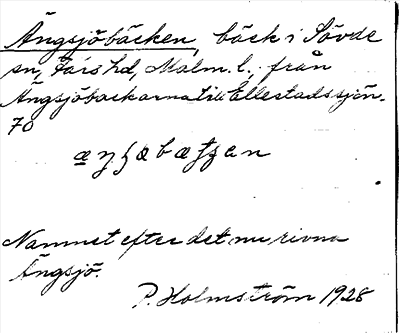 Ängsjöbäcken, bäck i Sövde
sn, Färs hd, Malm. l., från
Ängsjöbackarna till Ellestadssjön.
70
Namnet efter det nu rivna
Ängsjö.
P. Holmström 1928